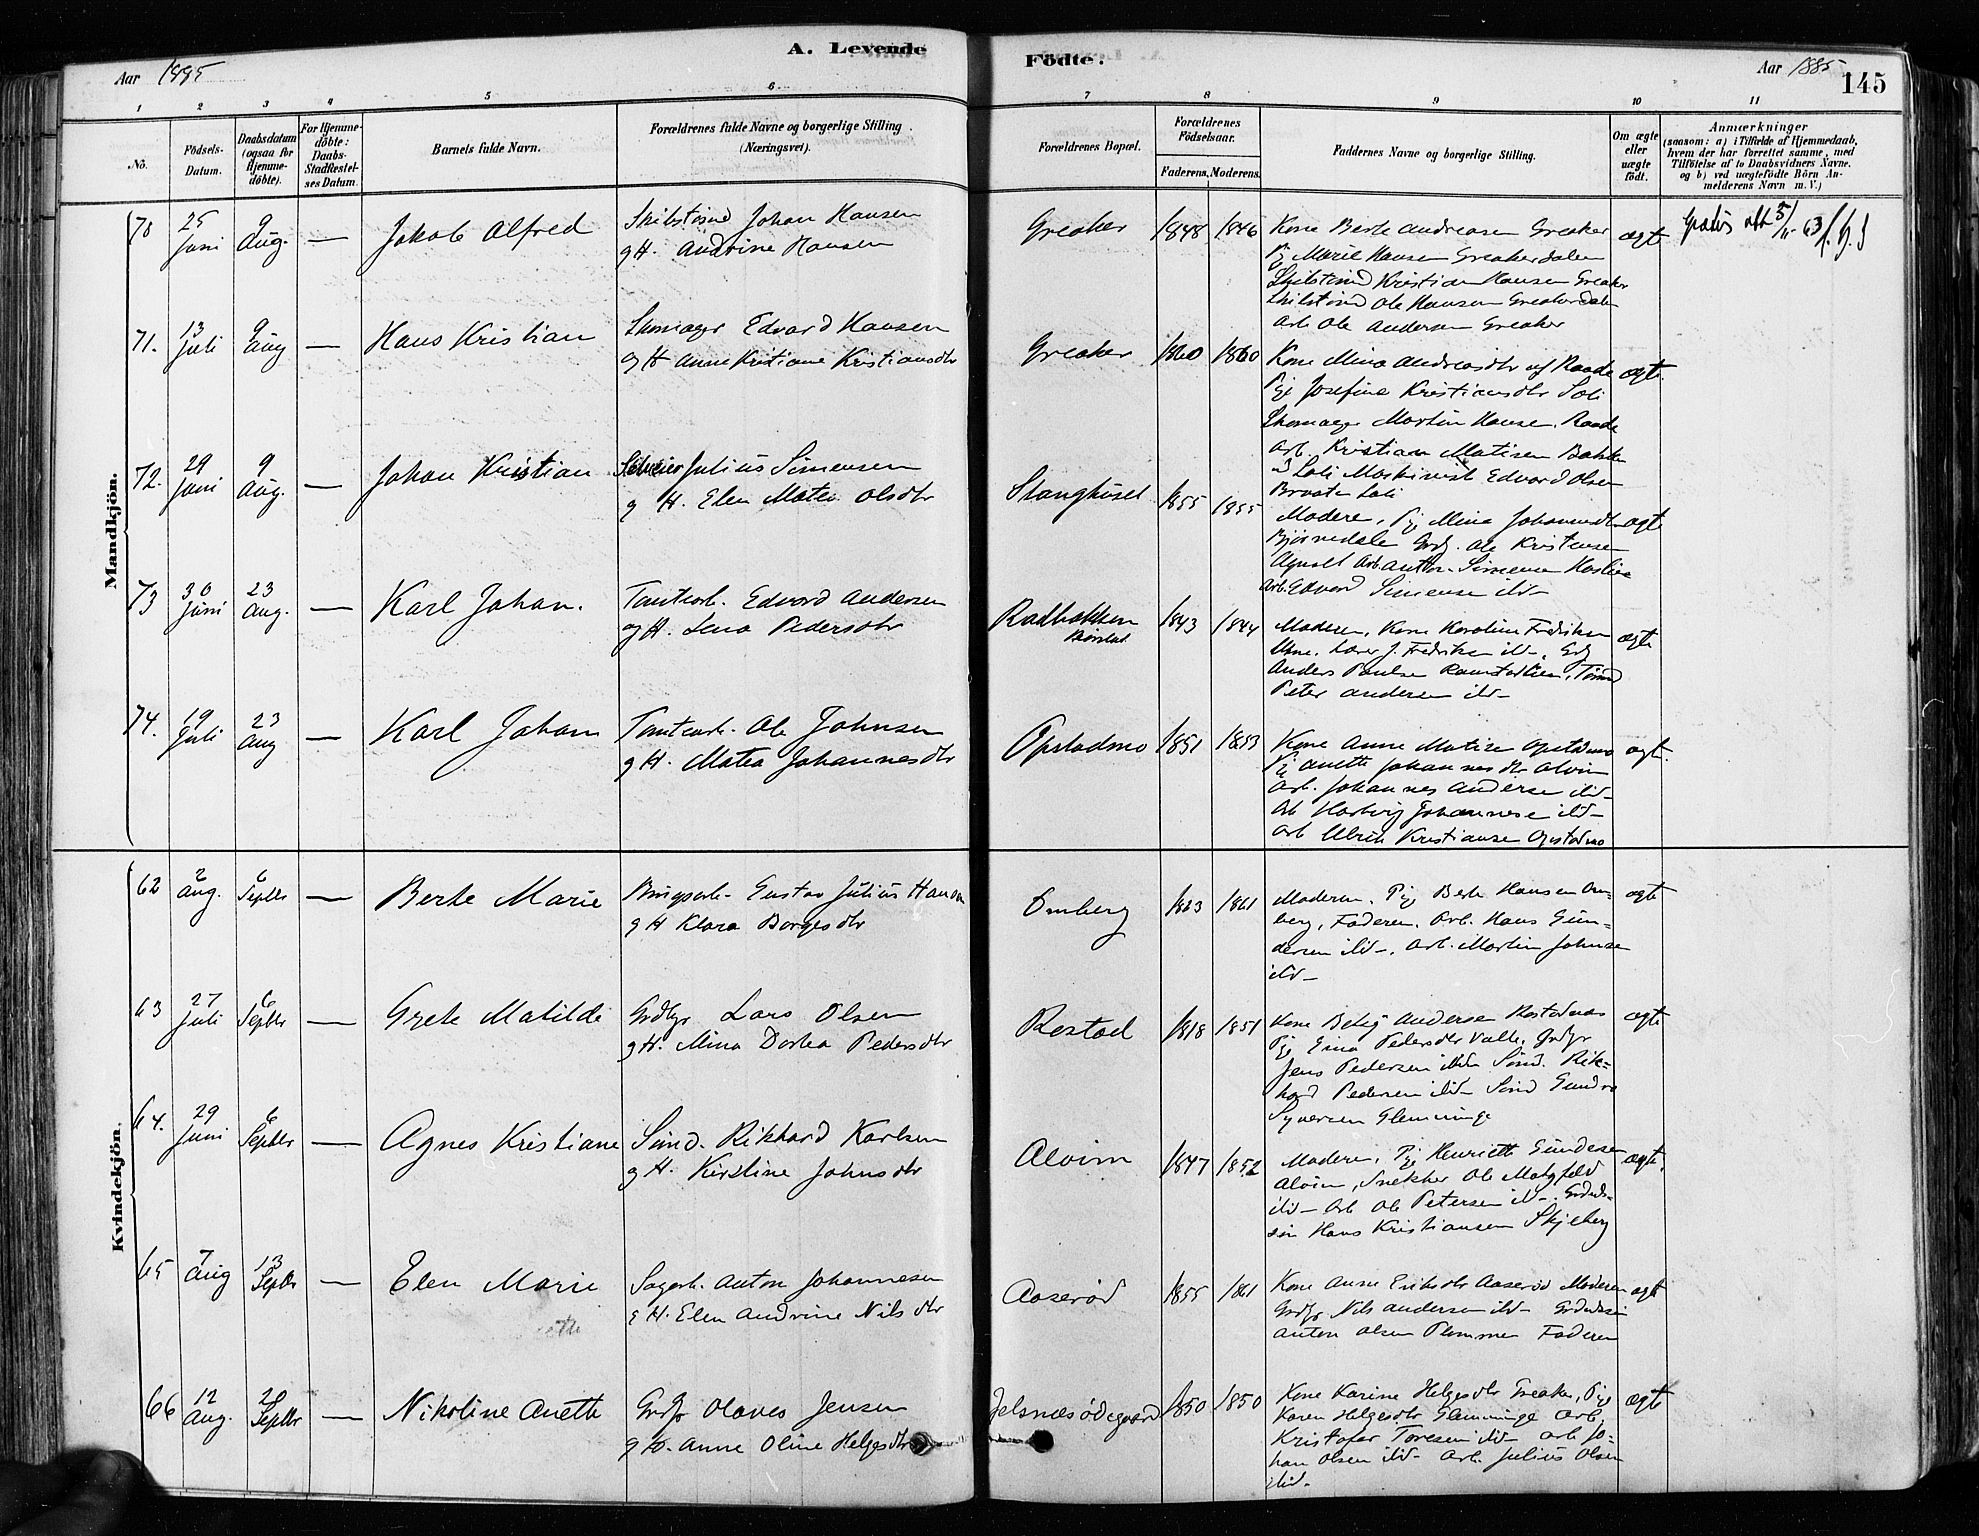 A. Levende
Födte.
Aar 1885
Aar 1885
145
1 2 3 4 5 6 7 8 9 10 11
No.
Födsels-Datum.
Daabsdatum (ogsaa for Hjemme-døbte).
For Hjemme-døbte: Daabs-Stadfæstel-ses Datum.
Barnets fulde Navn.
Forældrenes fulde Navne og borgerlige Stilling (Næringsvei).
Forældrenes Bopæl.
Forældrenes Födselsaar.
Faderens. Moderens.
Faddernes Navne og borgerlige Stilling.
Om ægte eller uægte födt.
Anmærkninger
(saasom: a) i Tilfælde af Hjemmedaab,
hvem der har forrettet samme, med
Tilföielse af to Daabsvidners Navne.
og b) ved uægtefödte Börn An-
melderens Navn m. V.)
Mandkjön.
70 25 Juni 9 Aug. — Jakob Alfred
Skibstømd Johan Hansen
g H. Andrine Hansen
Greaker 1848 1846
Kone Berte Andreasen Greaker
Pg Marie Hansen Greakerdalen
Skibstmd Kristian Hansen Greaker
Skibstmd Ole Hansen Greakerdalen
Arb Ole Andersen Greaker
ægte
71. 13 Juli 9 Aug — Hans Kristian
Skomager Edvard Hansen
og H Anne Kristiane Kristiansdtr
Greaker 1860 1860
Kone Mina Andreasdtr af Raade
Pige Josefine Kristiansdtr Soli
Skomager Martin Hansen Raade
Arb. Kristian Matisen Bakken
Soli Maskinist Edvard Olsen
Braaten Soli
ægte.
72. 29 Juni 9 Aug. — Johan Kristian
Julius Simensen
g H. Elen Matea Olsdtr
Stanghuset 1855 1855
Moderen, Pg Mina Johannesdtr
Bjørnedalen Grdg. Ole Kristensen
Agnalt Arb Anton Simensen
Arb. Edvard Simensen ibd-
ægte
73 30 Juni 23 Aug. — Karl Johan.
Tomtearb. Edvard Andersen
og H. Lena Pedersdtr
Radbakken 1843 1844
Moderen, Kone Karoline Fredriksen
J. Fredriksen ibd-, Grdg
Anders Paulsen Ramstadlien, Tømmd
Peter Andersen ibd-
ægte
74. 19 Juli 23 Aug — Karl Johan
Tomtearb. Ole Johnsen
g H. Matea Johannesdtr
Opstadmo 1851 1853
Kone Anne Matisen Opstadmo
Pg Anette Johannesdtr Alvim
Arb. Johannes Andersen ibd-
Arb Hartvig Johannesen ibd-
Arb Ulrik Kristiansen Opstadmo
ægte.
Kvindekjön.
62 2 Aug. 6 Septbr — Berte Marie
Brugsarb. Gustav Julius Hansen
g H Klara Borgesdtr
Omberg 1863 1861
Moderen, Pg Berte Hansen Om-
berg, Faderen, Arb. Hans Gun-
dersen ibd-, Arb. Martin Johnsen
ibd-
ægte
63 27 Juli 6 Septbr — Grete Matilde
Grdbr Lars Olsen
g H. Mina Dortea Pedersdtr
Restad 1818 1851
Kone Andersen
Pg Lina Pedersdtr Valle, Grdbr
Jens Pedersen ibd Sømd. Rik-
hard Pedersen ibd- Sømd
Syversen Glemminge
ægte
64. 29 Juni 6 Septbr — Agnes Kristiane
Sømd. Rikhard Karlsen
g H. Kirstine Johnsdtr
Alvim 1847 1852
Moderen, Pg Henriette Gundersen
Alvim, Snekker Ole
ibd- Arb Ole Petersen ibd- Grdmds-
søn Hans Kristiansen Skjeberg
ægte.
65 7 Aug 13 Septbr — Elen Marie
Sagarb. Anton Johannesen
g H. Elen Andrine Nilsdtr
Aaserød 1855 1861
Kone Anne Eriksdtr Aaserød Moderen
Grdbr Nils Andersen ibd-
Anton Olsen Faderen
ægte
66 12 Aug. 20 Septbr — Nikoline Anette
Grdbr Olaves Jensen
g H. Anne Oline Helgesdtr
Jelsnæsødegaard 1850 1850
Kone Karine Helgesdtr Greaker, Pige
Karen Helgesdtr Glemminge Arb.
Kristofer Toresen ibd- Arb Jo-
han Olsen ibd- Arb. Julius Olsen
ibd-
ægte